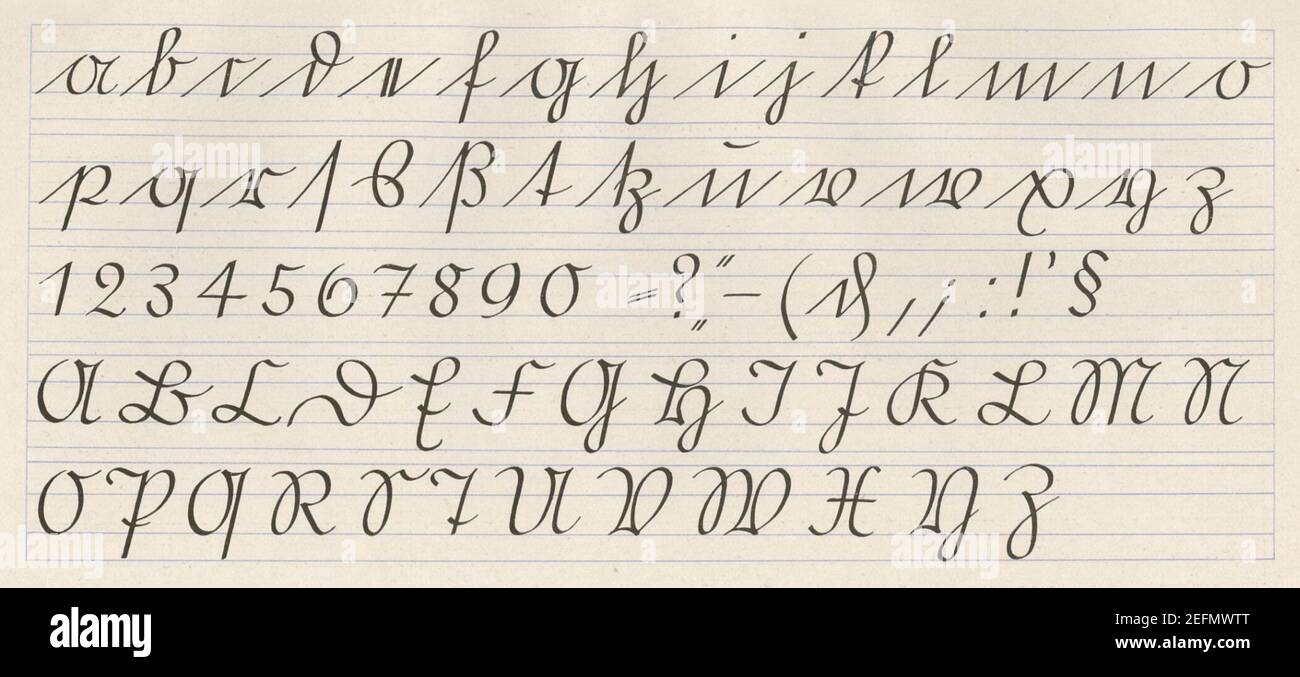 a b c d e f g h i j k l m n o
p q r ſ s ß t tz ŭ v w x y z
1 2 3 4 5 6 7 8 9 0 = ? „ “ – ( & , ; : ! ' §
A B C D E F G H I J K L M N
O P Q R S T U V W X Y Z
alamy
Image ID: 2EFMWTT
www.alamy.com